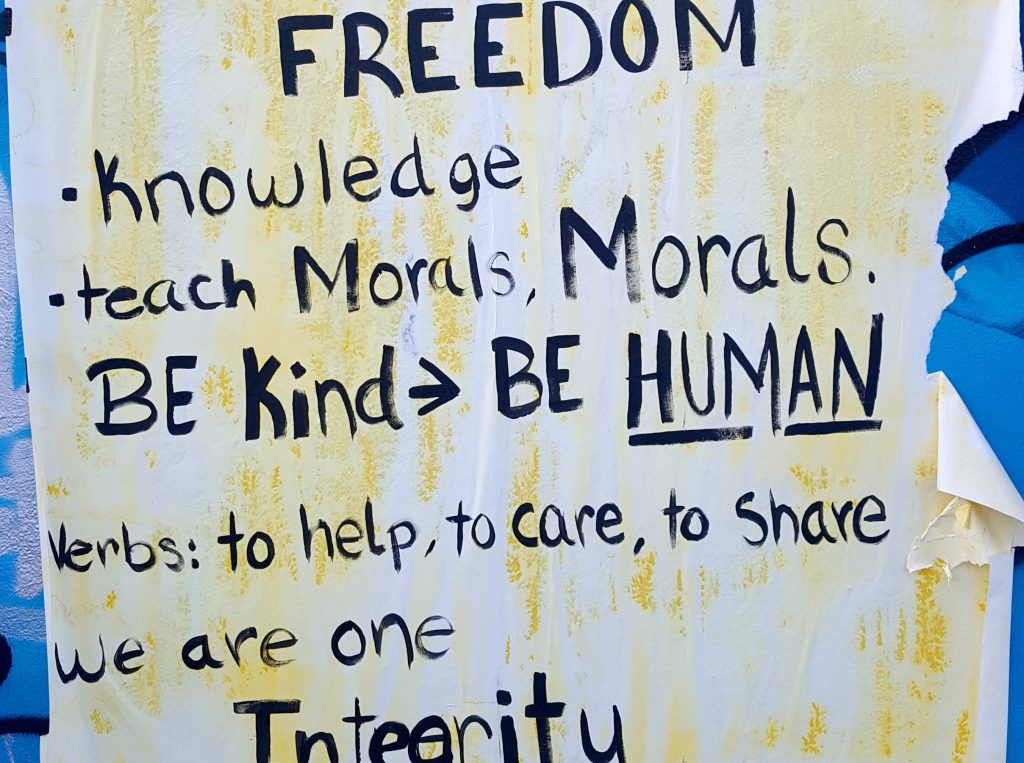 FREEDOM
• Knowledge
• teach Morals, Morals.
BE Kind → BE HUMAN
Verbs: to help, to care, to Share
We are one
Integrity